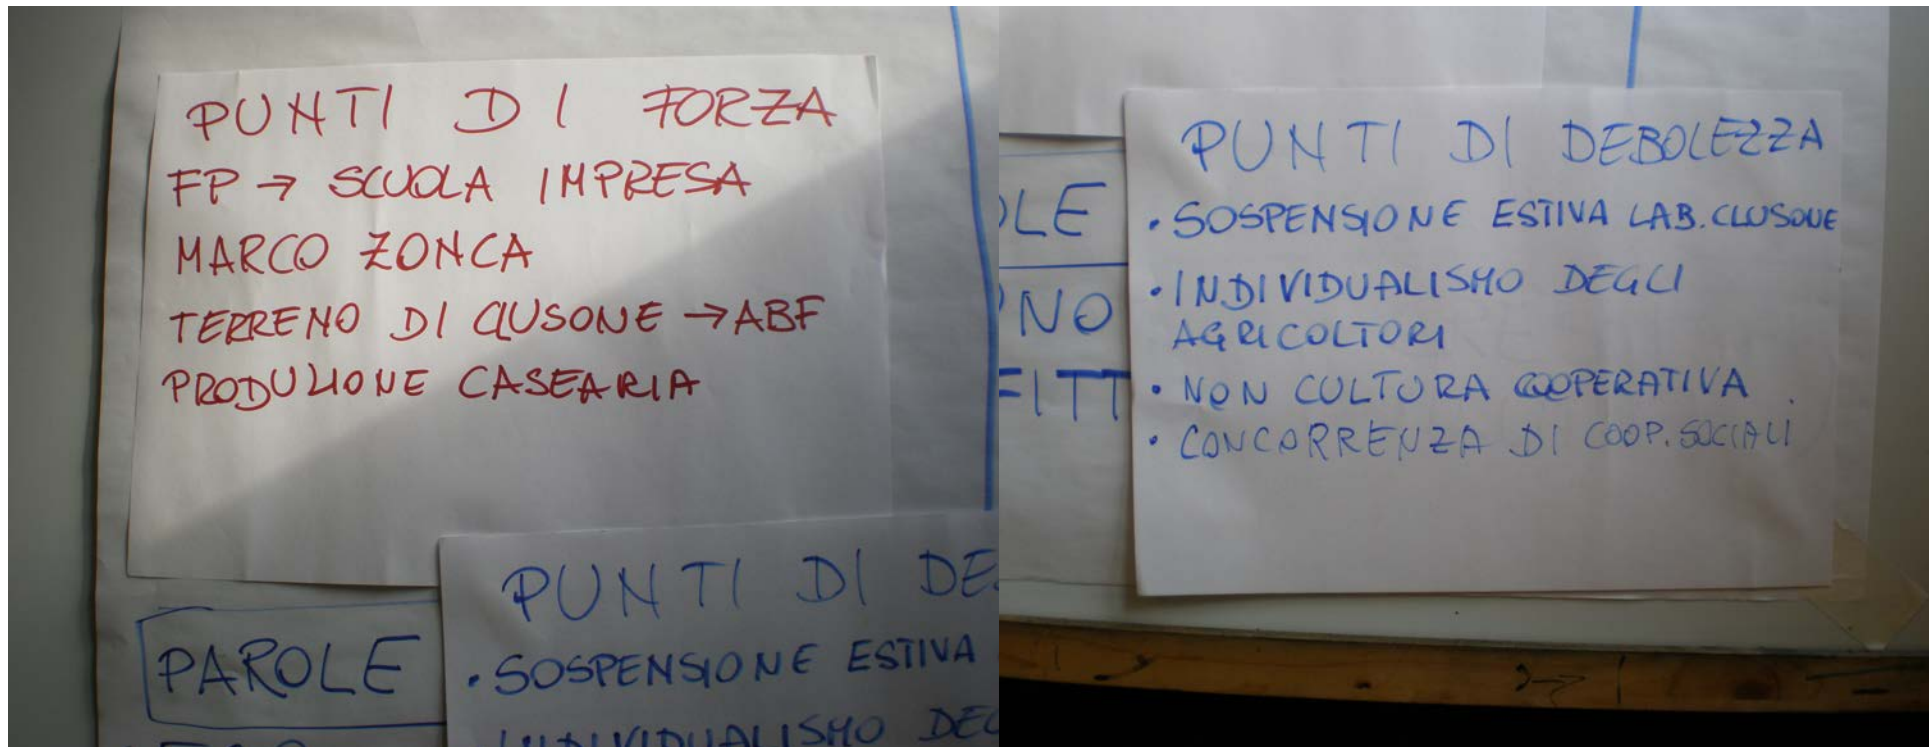 PUNTI DI FORZA
FP → SCUOLA IMPRESA
MARCO ZONCA
TERRENO DI CLUSONE → ABF
PRODUZIONE CASEARIA
PUNTI DI DE
PAROLE
• SOSPENSIONE ESTIVA
INDIVIDUALISMO DEG
PUNTI DI DEBOLEZZA
• SOSPENSIONE ESTIVA LAB. CLUSONE
• INDIVIDUALISMO DEGLI
AGRICOLTORI
• NON CULTURA COOPERATIVA
• CONCORRENZA DI COOP. SOCIALI
OLE
ONO
FITT